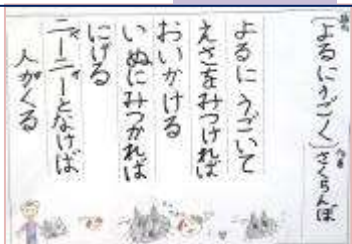 「よるにうごく」さくらんぼ
よるに うごいて
えさをみつければ
おいかける
いぬにみつかれば
にげる
ニーニーとなけば
人がくる